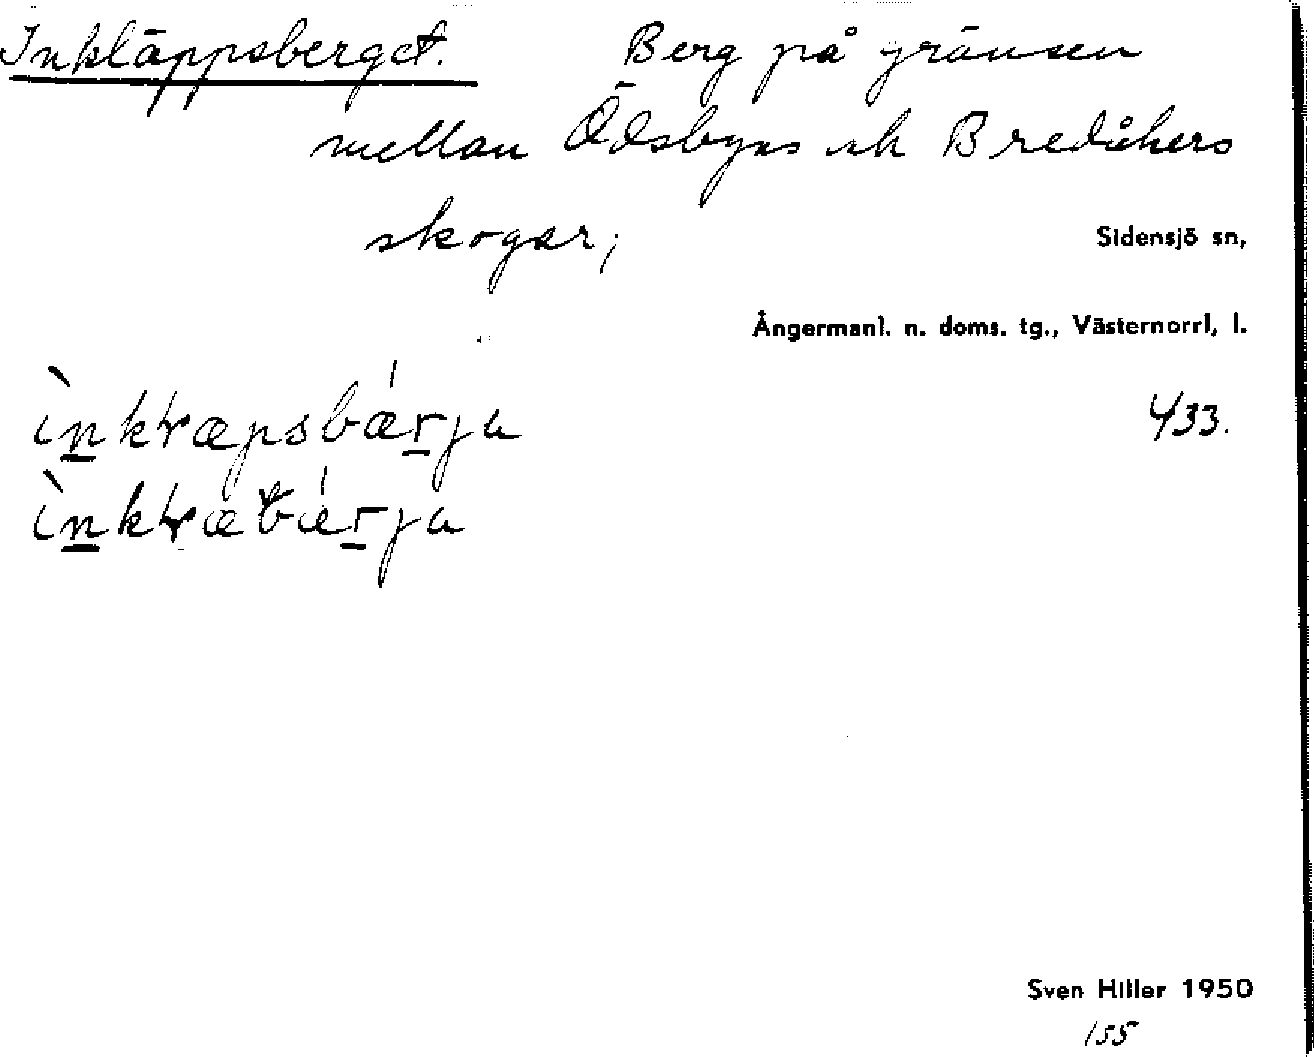 Inkläppsberget. Berg på gränsen
mellan Ödsbyns och Bredåkers
skogar;
Sidensjö sn,
Ångermanl. n. doms. tg., Västernorrl, l.
433.
Sven Hiller 1950
155